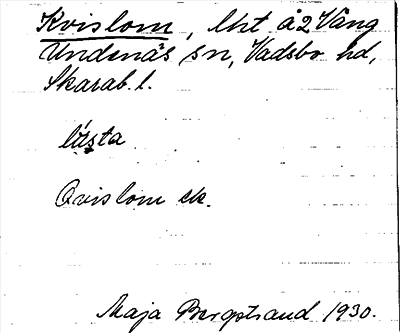 Kvislom, lht å 2 Vång
Undenäs sn, Vadsbo hd,
Skarab. l.
låsta
Qvislom ek.
Maja Bergstrand 1930.